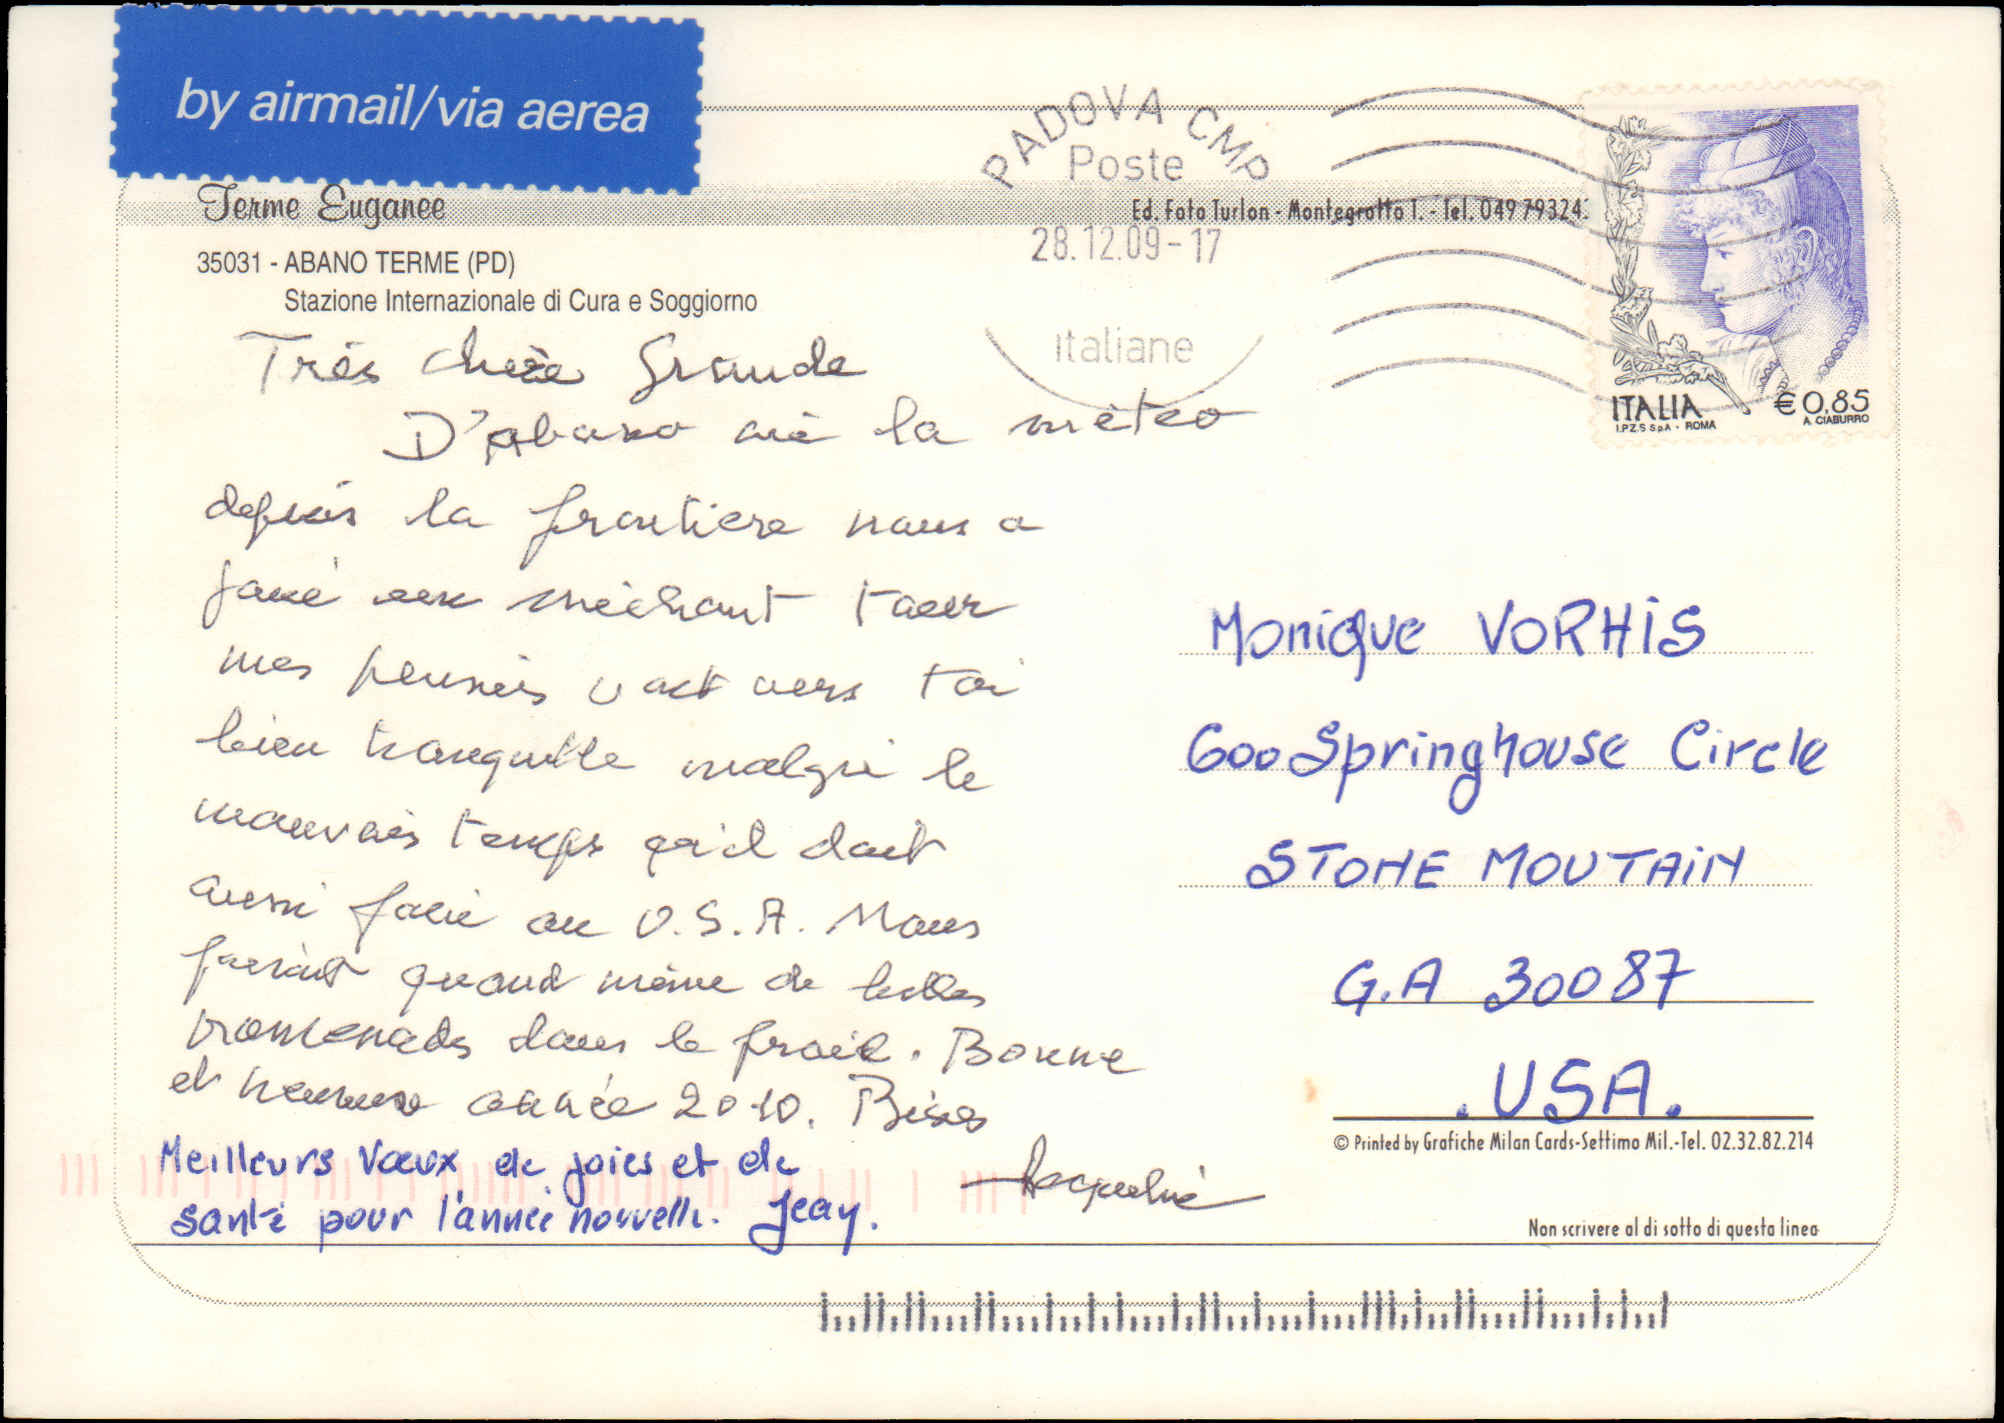 by airmail/via aerea
PADOVA CMP
Poste
28.12.09-17
italiane
Terme Euganee
Ed. Foto Turlon - Montegrotto T. - Tel. 049 79324
35031 - ABANO TERME (PD)
Stazione Internazionale di Cura e Soggiorno
ITALIA
€ 0,85
I.P.Z.S. S.p.A. - ROMA
A. CIABURRO
Très chère Grande
D'Abano où la météo
depuis la frontière nous a
joué un méchant tour
mes pensées vont vers toi
bien tranquille malgré le
mauvais temps qu'il doit
aussi faire au U.S.A. Nous
faisons quand même de belles
promenades dans le froid. Bonne
et heureuse année 2010. Bises
Jacqueline
Meilleurs Vœux de joies et de
santé pour l'année nouvelle. Jeay.
Monique VORHiS
600 Springhouse Circle
STONE MOUTAiN
G.A 30087
.USA.
© Printed by Grafiche Milan Cards-Settimo Mil.-Tel. 02.32.82.214
Non scrivere al di sotto di questa linea